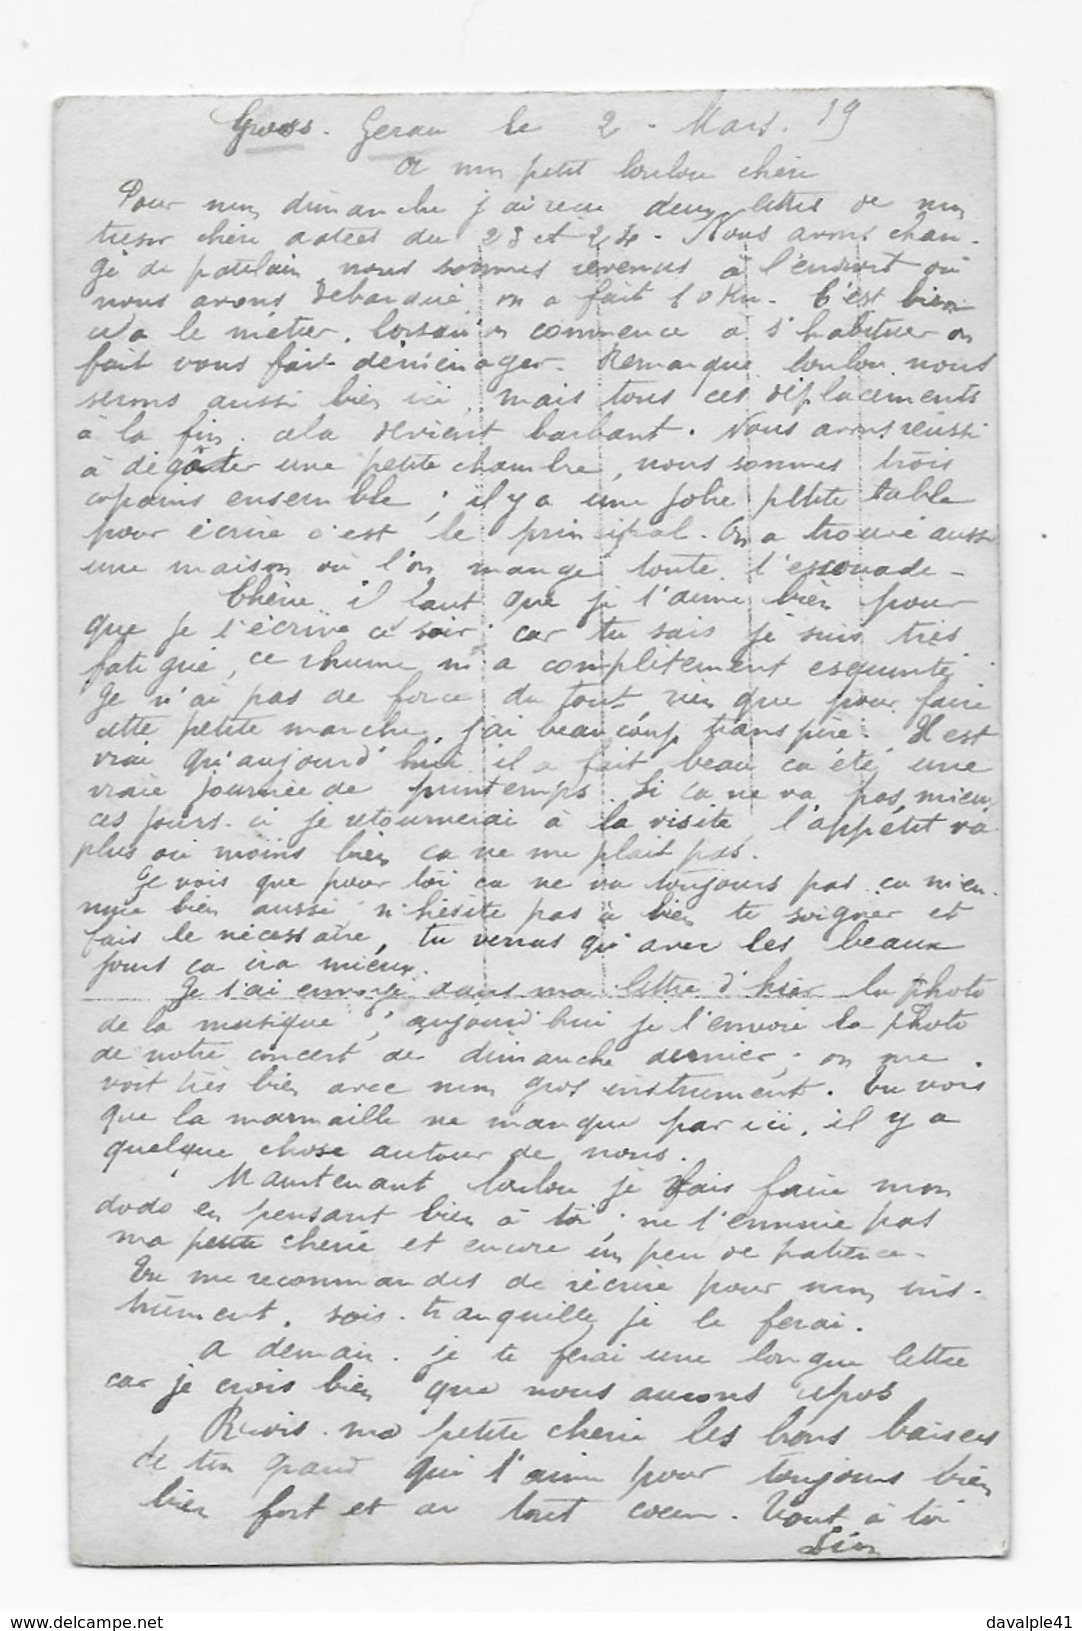 Gross-Gerau le 2 - Mars. 19
A mon petit loulou chéri
Pour mon dimanche j'ai reçu deux lettres de mon
trésor chéri datées du 23 et 24 - Nous avons chan-
gé de patelain, nous sommes revenus à l'endroit où
nous avons débarqué on a fait 10 Km. C'est bien
ça le métier, lorsqu'on commence à s'habituer on
fait vous fait déménager. Remarque loulou nous
serons aussi bien ici, mais tous ces déplacements
à la fin cela devient barbant. Nous avons réussi
à dégoter une petite chambre, nous sommes trois
copains ensemble ; il y a une jolie petite table
pour écrire c'est le principal. On a trouvé aussi
une maison où l'on mange toute l'escouade -
Chérie il faut que je t'aime bien pour
que je t'écrive ce soir car tu sais je suis très
fatigué, ce rhume m'a complètement esquinté
Je n'ai pas de force du tout, rien que pour faire
cette petite marche, j'ai beaucoup transpiré. Il est
vrai qu'aujourd'hui il a fait beau ça été une
vraie journée de printemps. Si ça ne va pas mieux
ces jours-ci je retournerai à la visite, l'appétit va
plus ou moins bien ça ne me plait pas.
Je vois que pour toi ça ne va toujours pas ça m'en-
nuie bien aussi, n'hésite pas à bien te soigner et
fais le nécessaire, tu verras qu'avec les beaux
jours ça ira mieux.
Je t'ai envoyé dans ma lettre d'hier la photo
de la musique ; aujourd'hui je t'envoie la photo
de notre concert de dimanche dernier ; on me
voit très bien avec mon gros instrument. Tu vois
que la marmaille ne manque par ici, il y a
quelque chose autour de nous.
Maintenant loulou je vais faire mon
dodo en pensant bien à toi ; ne t'ennuie pas
ma petite chérie et encore un peu de patience -
Tu me recommandes de réécrire pour mon ins-
trument, sois tranquille je le ferai.
A demain. je te ferai une longue lettre
car je crois bien que nous aurons repos
Reçois ma petite chérie les bons baisers
de ton grand qui t'aime pour toujours bien
bien fort et du tout coeur. Tout à toi
Léon
davalple41
www.delcampe.net